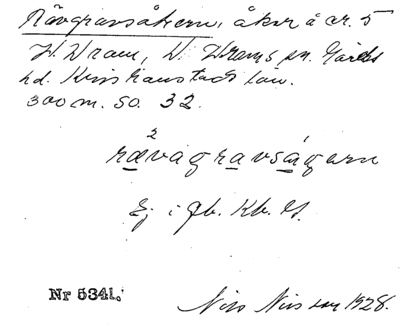 Rävgravsåkern, åker å nr. 5
V. Vram, V. Vrams sn. Gärds
hd. Kristianstads län.
300 m. SO. 32.
2
rævagravságarn
Ej i Jb. Kb. El.
Nr 5341.
Nils Nilsson 1928.